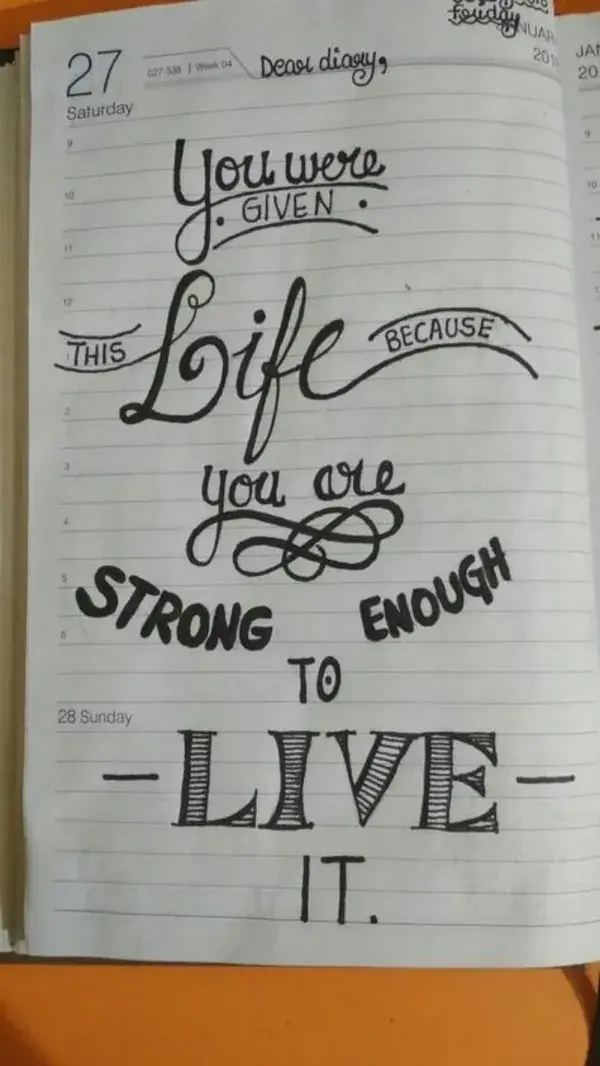 Friday
JANUAR
201
27
027-338 | Week 04
Dear diary,
Saturday
JAN
20
9
You were
10
GIVEN
11
12
THIS Life BECAUSE
2
3
you are
4
5
STRONG ENOUGH
6
TO
28 Sunday
- LIVE -
IT.
9
10
11